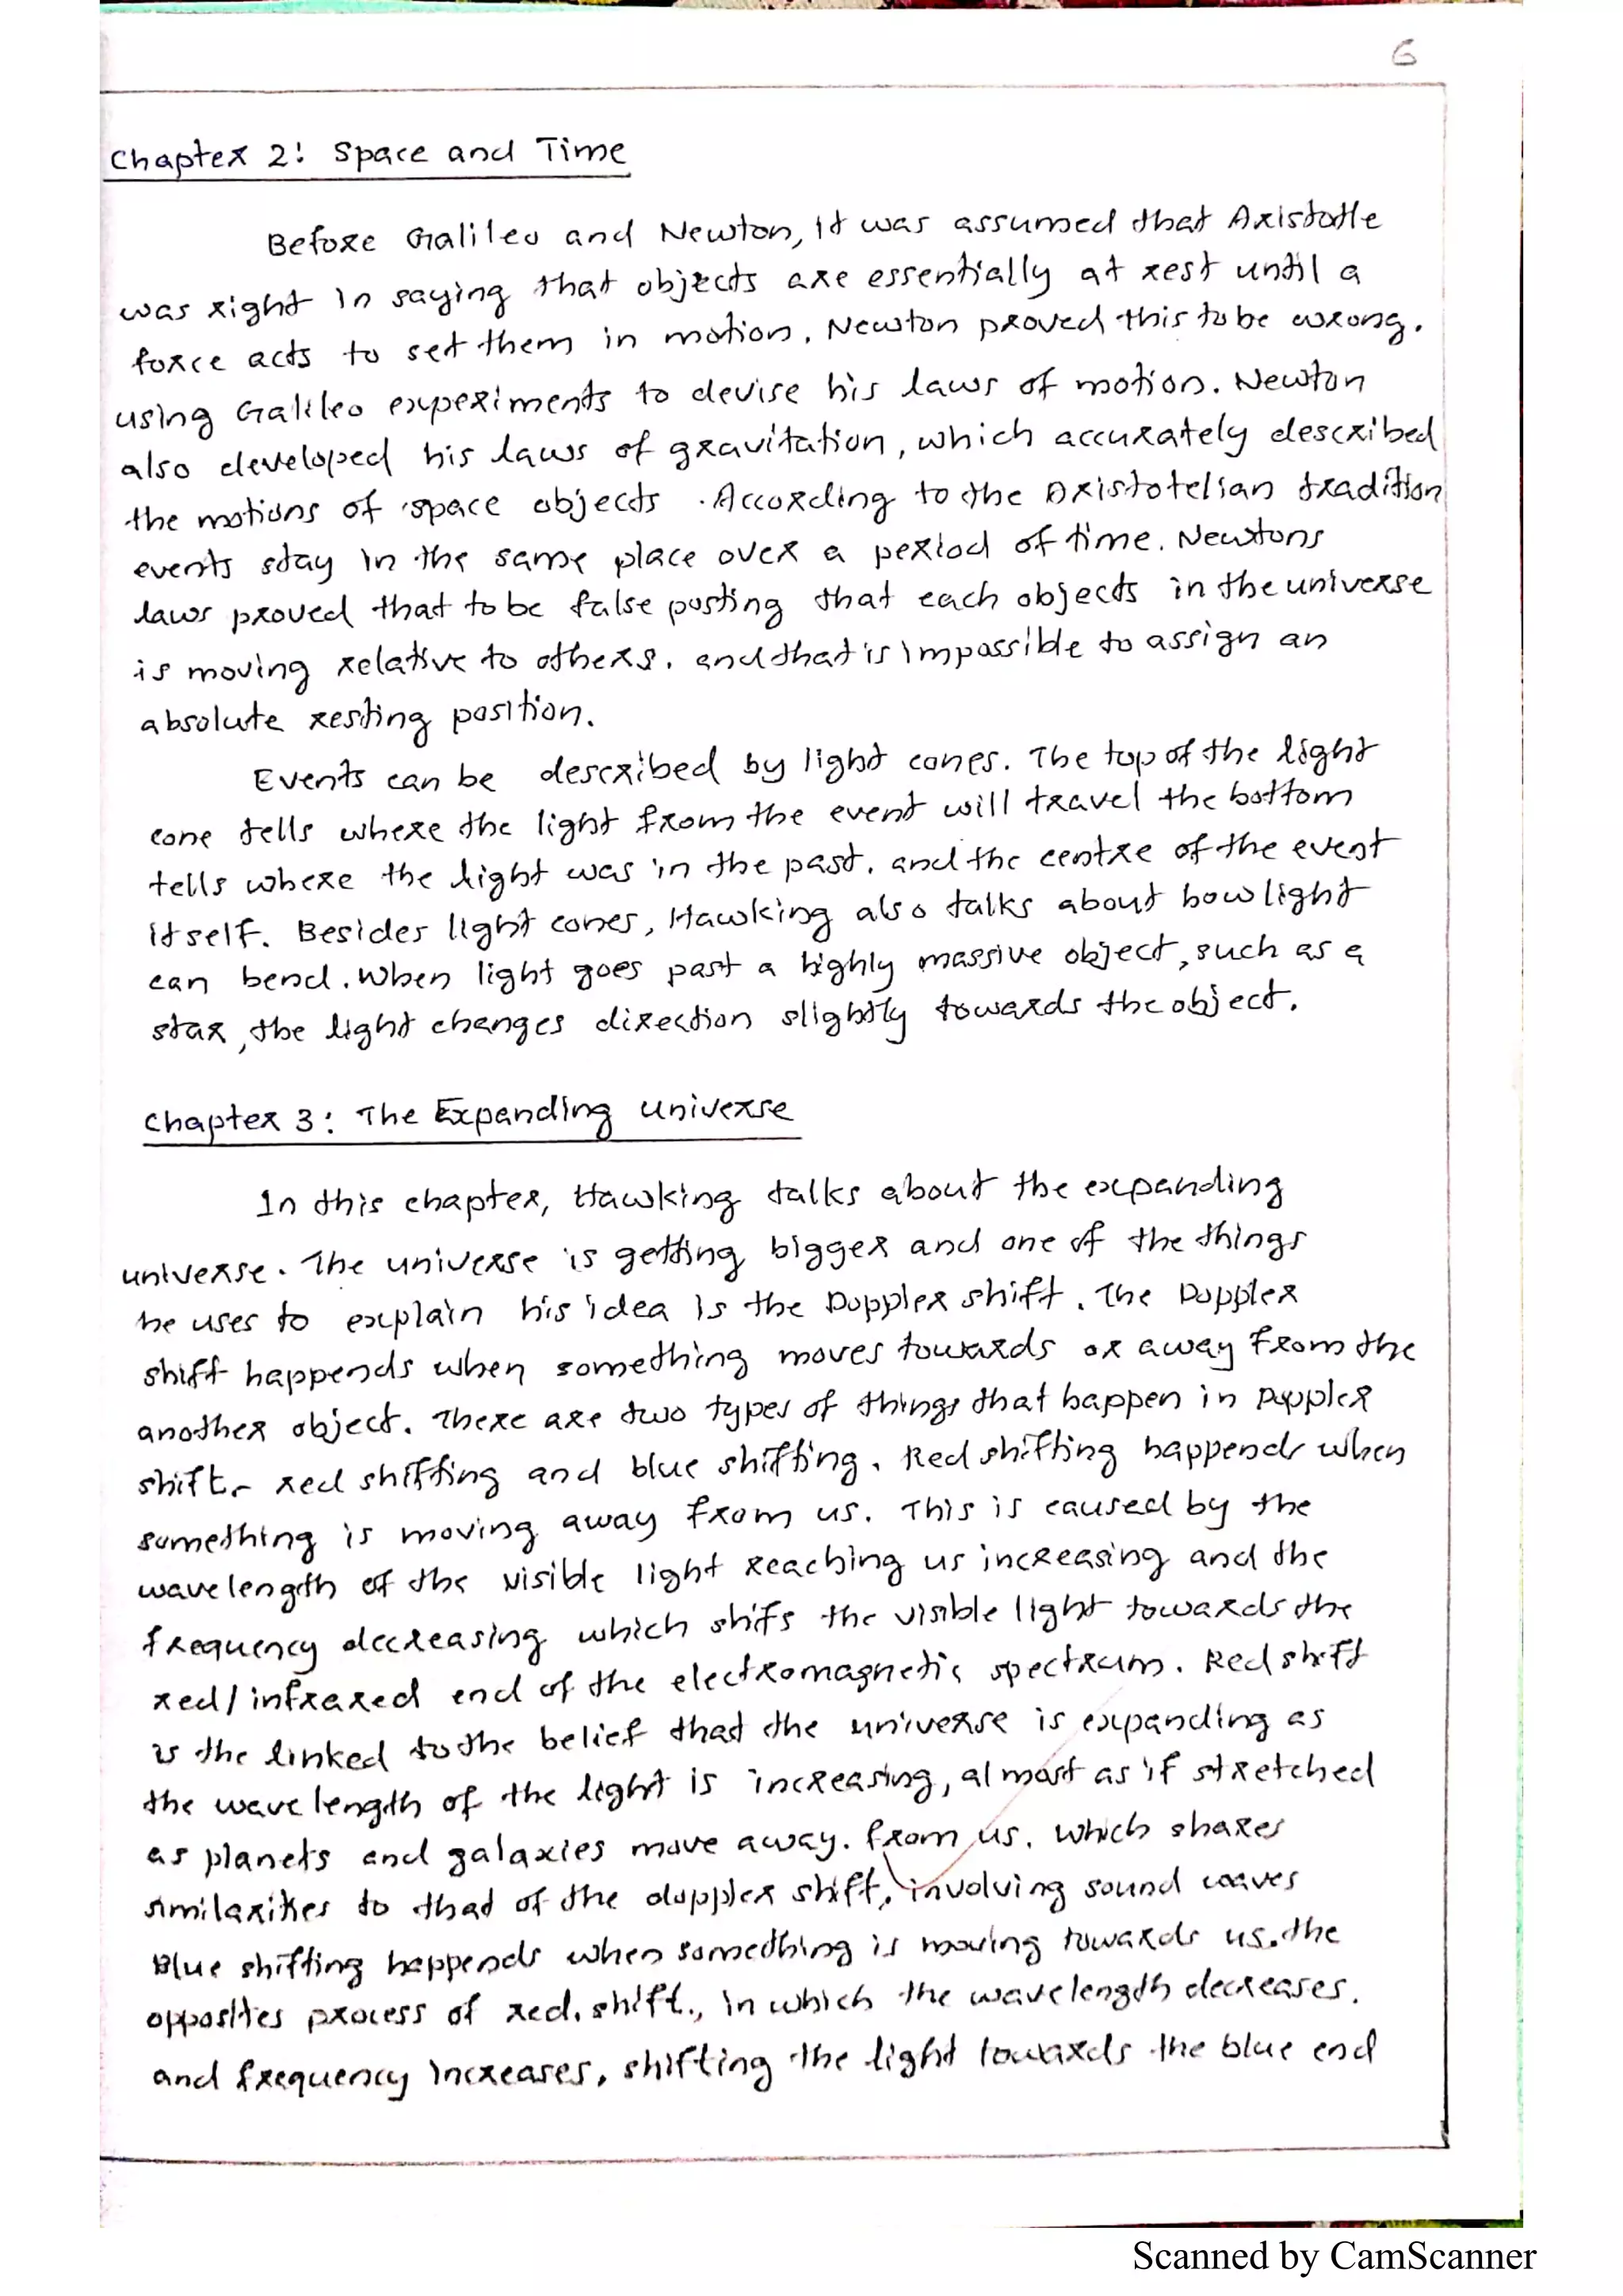 6
Chapter 2: Space and Time
Before Galileo and Newton, it was assumed that Aristotle
was right in saying that objects are essentially at rest until a
force acts to set them in motion. Newton proved this to be wrong.
using Galileo experiments to devise his laws of motion. Newton
also developed his laws of gravitation, which accurately described
the motions of space objects. According to the Aristotelian tradition
events stay in the same place over a period of time. Newtons
laws proved that to be false posting that each objects in the universe
is moving relative to others. and that is impossible to assign an
absolute resting position.
Events can be described by light cones. The top of the light
cone tells where the light from the event will travel the bottom
tells where the light was in the past. and the centre of the event
itself. Besides light cones, Hawking also talks about how light
can bend. When light goes past a highly massive object, such as a
star, the light changes direction slightly towards the object.
Chapter 3: The Expanding universe
In this chapter, Hawking talks about the expanding
universe. The universe is getting bigger and one of the things
he uses to explain his idea is the Doppler shift. The Doppler
shift happends when something moves towards or away from the
another object. There are two types of things that happen in Doppler
shift- red shifting and blue shifting. Red shifting happends when
something is moving away from us. This is caused by the
wavelength of the visible light reaching us increasing and the
frequency decreasing which shifs the visible light towards the
red/infrared end of the electromagnetic spectrum. Red shift
is the linked to the belief that the universe is expanding as
the wave length of the light is increasing, almost as if stretched
as planets and galaxies move away. from us. which shares
similarities to that of the doppler shift, involving sound waves
Blue shifting happends when something is moving towards us. the
opposites process of red. shift., in which the wavelength decreases.
and frequency increases, shifting the light towards the blue end
Scanned by CamScanner